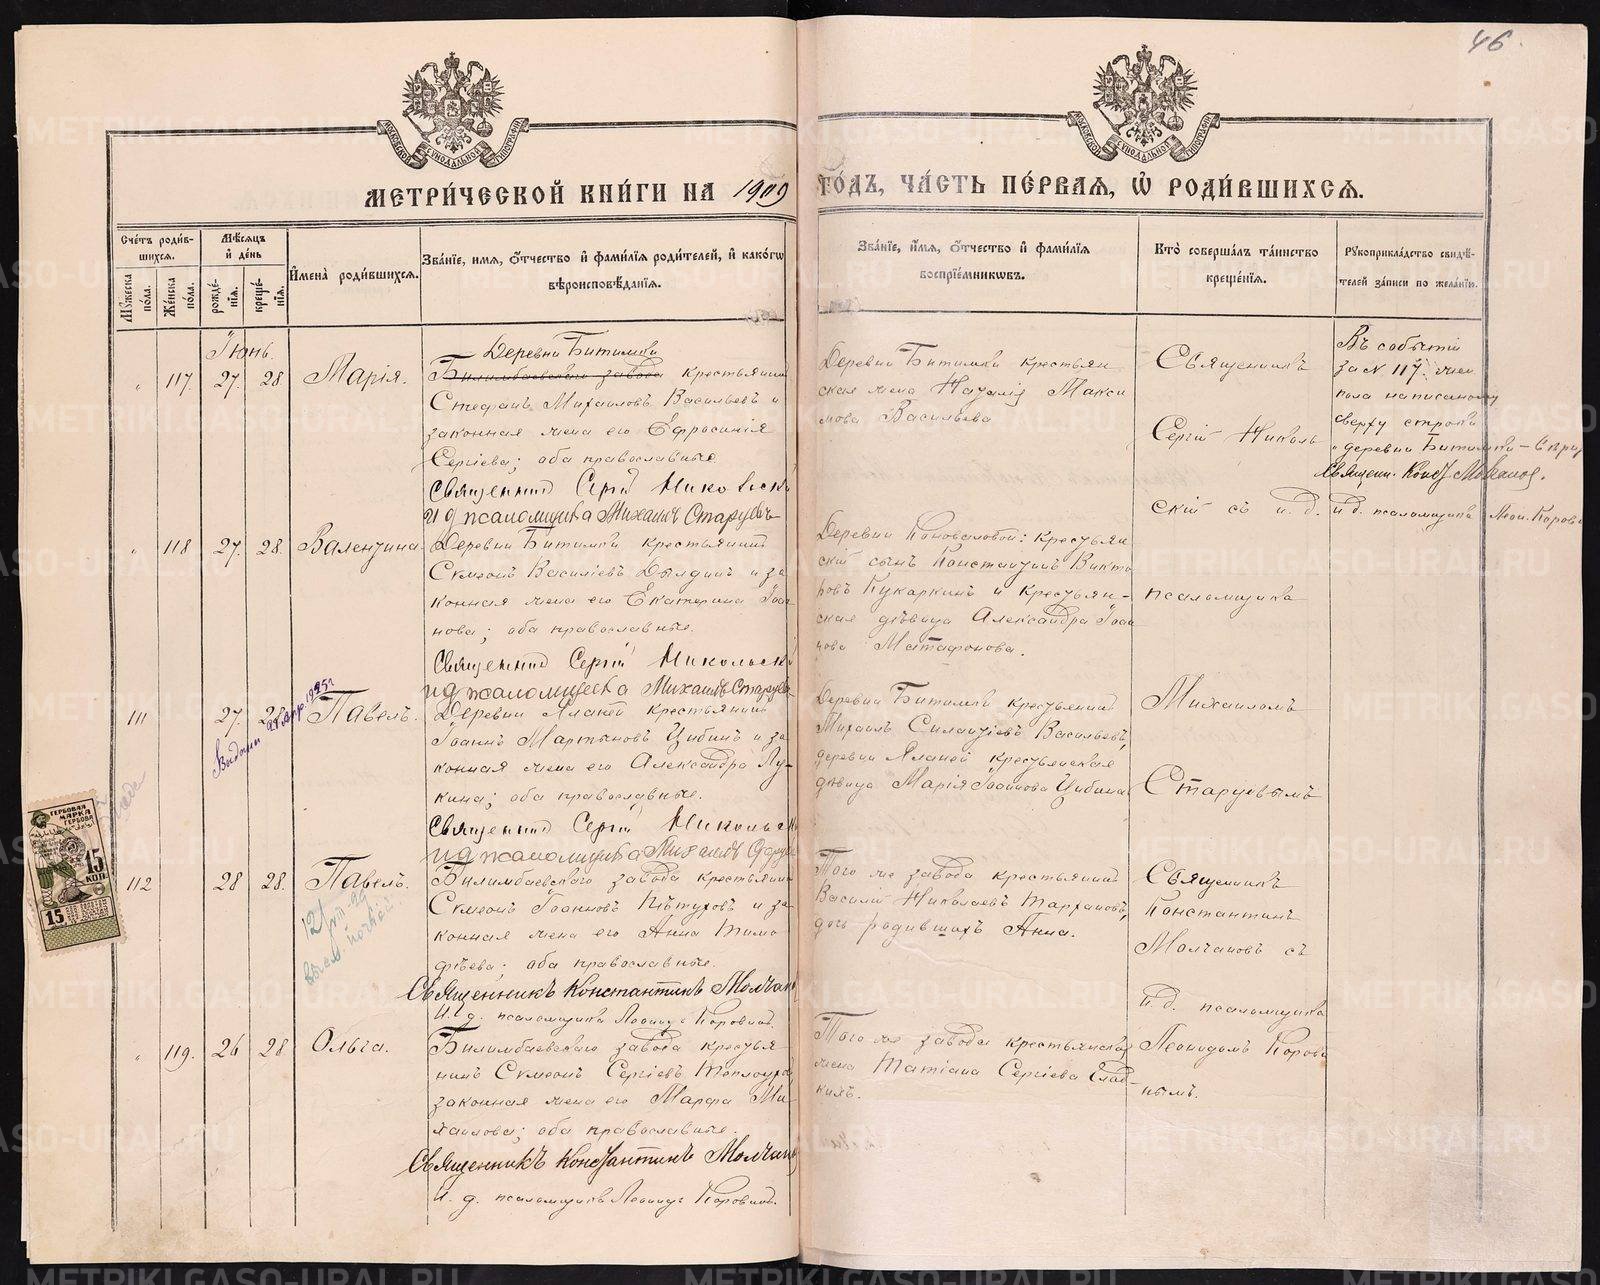 46
МЕТРИ́ЧЕСКОЙ КНИ́ГИ НА 1909 ГО́ДЪ, ЧА́СТЬ ПЕ́РВАЯ, Ѡ РОДИ́ВШИХСЯ.
Сче́тъ роди́в-
шихся.
Мѣ́сяцъ
и де́нь
Имена̀ роди́вшихся.
Зва́нїе, имя, о́тчество и фами́лїя роди́телей, и како́гѡ
вѣроисповѣ́данїя.
Зва́нїе, и́мя, о́тчество и фами́лїя
воспрїе́мниковъ.
Кто̀ соверша́лъ та́инство
креще́нїя.
Рукоприкла́дство свидѣ́-
телей за́писи по жела́нїю.
Му́жеска по́ла.
Же́нска по́ла.
рожде́-нїя.
креще́-нїя.
Іюнь.
117. 27. 28 Марія.
Деревни Битимки
Билимбаевскаго завода крестьянин
Стефанъ Михаиловъ Васильевъ и
законная жена его Ефросинія
Сергіева; оба православные.
Священникъ Сергій Никольскій
И д псаломщика Михаилъ Старцевъ
Деревни Битимки крестьян
ская жена Наталія Макси
мова Васильева
Священникъ
Сергій Николь
скій съ и. д.
Въ событіи
за № 117. жен.
пола написанному
сверху строки
"деревни Битимки
Священ. Конст. Молчановъ.
И д. псаломщика Леон. Корови
118 27. 28. Валентина.
Деревни Битимки крестьянинъ
Симеонъ Василіевъ Дылдинъ и за
конная жена его Екатерина Іоан
нова; оба православные.
Священникъ Сергій Никольскій
И д псаломщика Михаилъ Старцевъ
Деревни Коноваловой: крестьян
скій сынъ Константинъ Викто
ровъ Кукаркинъ и крестьян-
ская дѣвица Александра Іоан
нова Матафонова.
псаломщика
111 27. 28 Павелъ.
Выдана 1925г
Деревни Яланей крестьянинъ
Іоаннъ Мартыновъ Цибинъ и за
конная жена его Александра Лу
кина; оба православные.
Священникъ Сергій Никольск
И д псаломщика Михаилъ Старце
Деревни Битимки крестьянинъ
Михаилъ Силантіевъ Васильевъ,
деревни Яланей крестьянская
дѣвица Марія Іоаннова Цибина
Михаиломъ
Старцевымъ
ГЕРБОВАЯ
МАРКА
15
КОП.
15
112 28 28. Павелъ.
Билимбаевскаго завода крестьянин
Симеонъ Іоанновъ Пѣтуховъ и за
конная жена его Анна Тимо
фѣева; оба православные.
Священникъ Константинъ Молчан
И. д. псаломщика Леонидъ Коровинъ.
Того же завода крестьянинъ
Василій Николаевъ Тархановъ,
дочь родившихъ Анна.
Священникъ
Константинъ
Молчановъ съ
и д. псаломщика
119. 26 28 Ольга.
Билимбаевскаго завода крестья
нинъ Симеонъ Сергіевъ Теплоухо
законная жена его Марфа Ми
хаилова; оба православные.
Священникъ Константинъ Молчан
И. д. псаломщика Леонидъ Коровинъ.
Того же завода крестьянская
жена Татіана Сергіева Глад-
кихъ.
Леонидомъ Корови
нымъ.